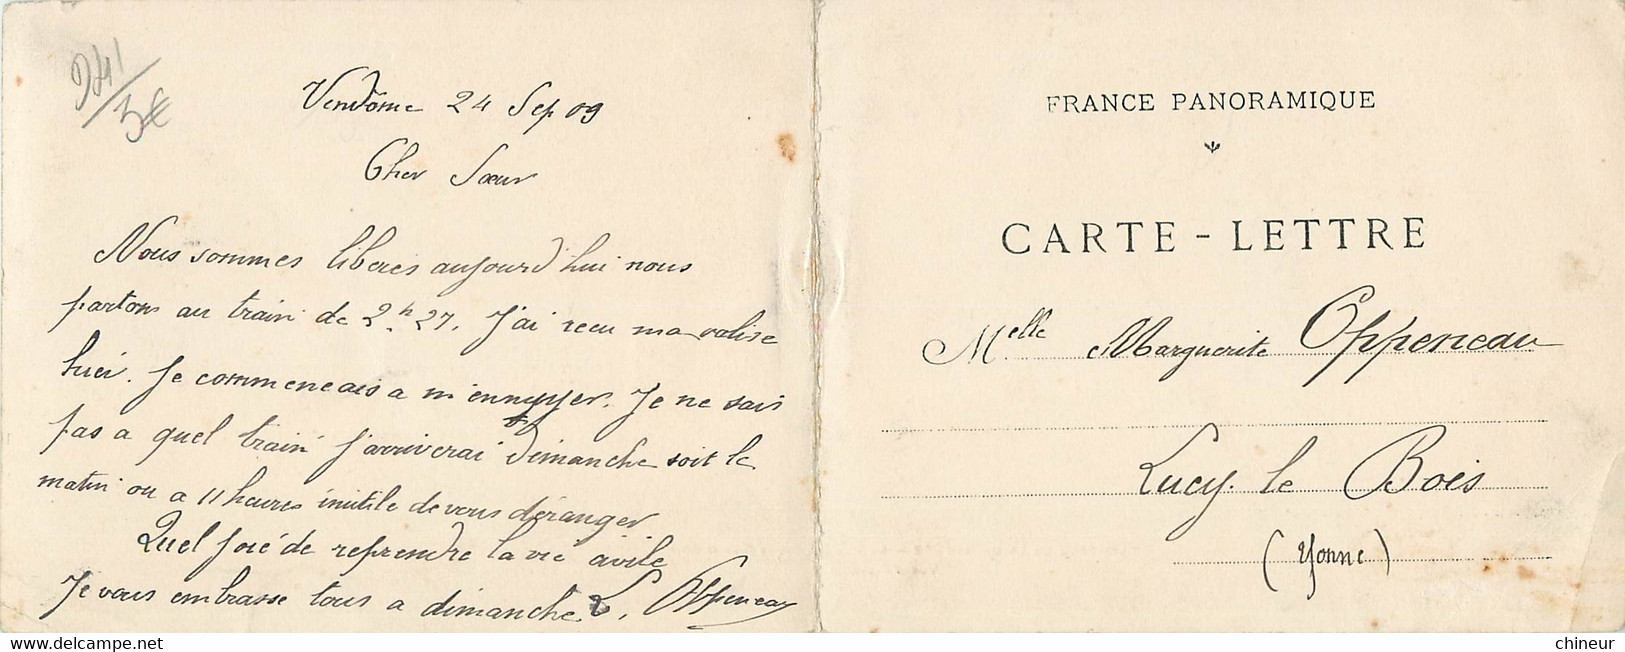 941
3€
Vendôme 24 Sep 09
Cher Sœur
Nous sommes liberes aujourd hui nous
partons au train de 2h 27. J'ai recu ma valise
hier. Je commencais a m'ennuyer. Je ne sais
pas a quel train j'arriverai Dimanche soit le
matin ou a 11 heures inutile de vous déranger
Quel joie de reprendre la vie civile
Je vous embrasse tous a dimanche L. Oppeneau
FRANCE PANORAMIQUE
CARTE - LETTRE
Melle Marguerite Oppeneau
Lucy. le Bois
(Yonne)
chineur